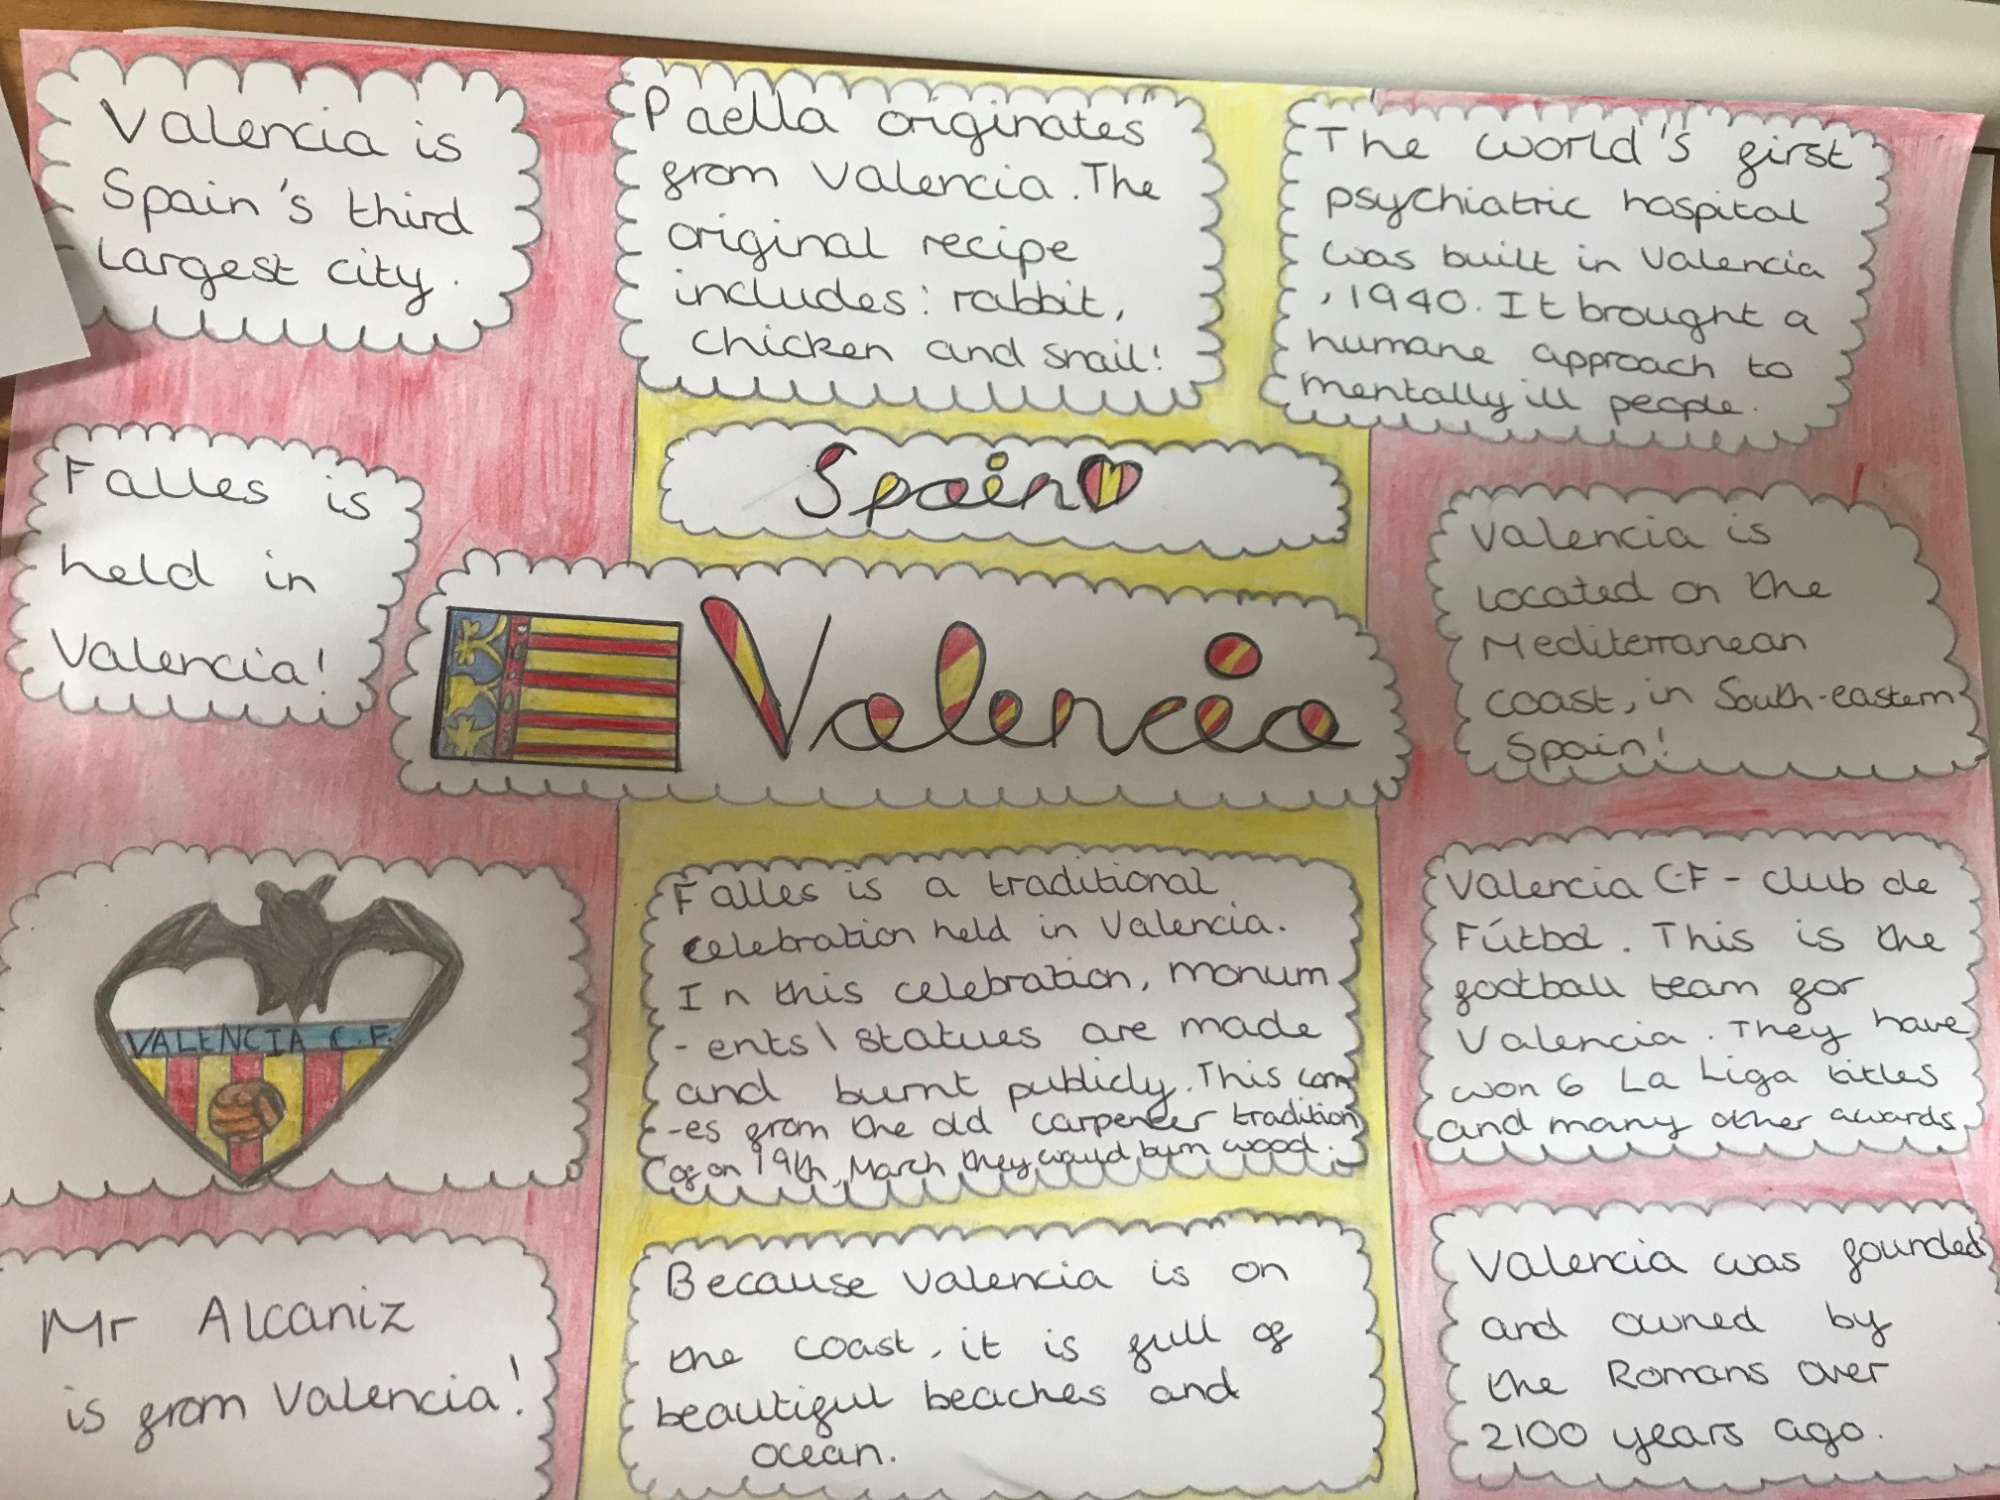 Valencia is
Spain's third
largest city.
Paella originates
from Valencia. The
original recipe
includes: rabbit,
chicken and snail!
The world's first
psychiatric hospital
was built in Valencia
, 1940. It brought a
humane approach to
mentally ill people.
Spain
Falles is
held in
Valencia!
Valencia
Valencia is
located on the
Mediterranean
coast, in South-eastern
Spain!
VALENCIA C.F.
Falles is a traditional
celebration held in Valencia.
In this celebration, monum
-ents\ statues are made
and burnt publicly. This com
-es from the old carpenter tradition
of on 19th, March they would burn wood.
Valencia CF - Club de
Fútbol. This is the
football team for
Valencia. They have
won 6 La Liga titles
and many other awards
Mr Alcaniz
is from Valencia!
Because Valencia is on
the coast, it is full of
beautiful beaches and
ocean.
Valencia was founded
and owned by
the Romans over
2100 years ago.